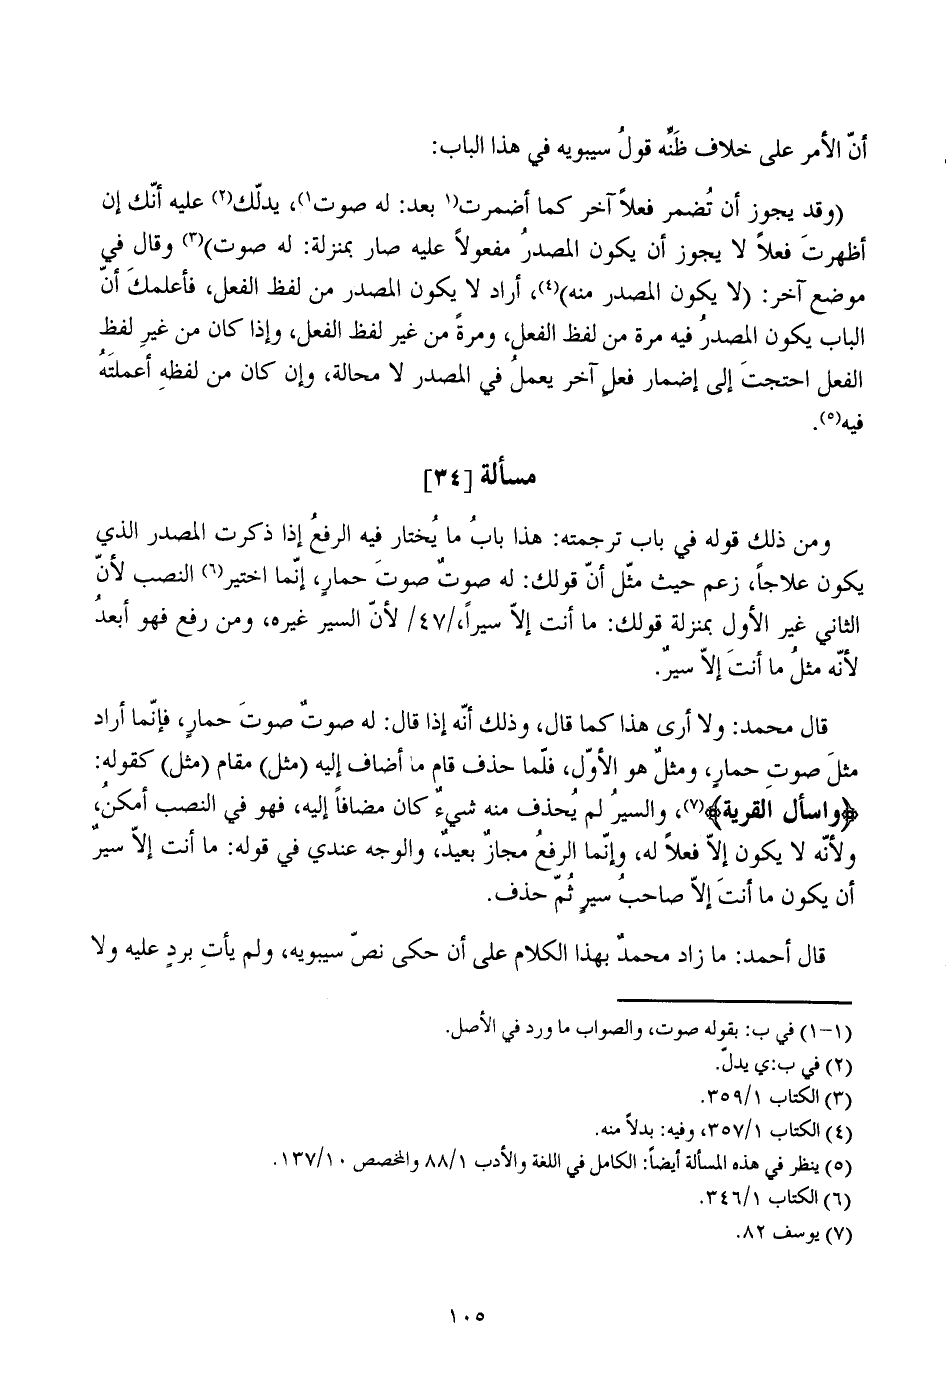 أنّ الأمر على خلاف ظَنِّه قولُ سيبويه في هذا الباب:
(وقد يجوز أن تُضمر فعلاً آخر كما أضمرت(١ بعد: له صوت١)، يدلّك(٢) عليه أنّك إن
أظهرتَ فعلاً لا يجوز أن يكون المصدرُ مفعولاً عليه صار بمنزلة: له صوت)(٣) وقال في
موضع آخر: (لا يكون المصدر منه)(٤)، أراد لا يكون المصدر من لفظ الفعل، فأعلمكَ أنّ
الباب يكون المصدرُ فيه مرة من لفظ الفعل، ومرةً من غير لفظ الفعل، وإذا كان من غيرِ لفظ
الفعل احتجتَ إلى إضمار فعلٍ آخر يعملُ في المصدر لا محالة، وإن كان من لفظهِ أعملتَهُ
فيه(٥).
مسألة [٣٤]
ومن ذلك قوله في باب ترجمته: هذا بابُ ما يُختار فيه الرفعُ إذا ذكرت المصدر الذي
يكون علاجاً، زعم حيث مثّل أنّ قولك: له صوتٌ صوتَ حمارٍ، إنّما اختير(٦) النصب لأنّ
الثاني غير الأول بمنزلة قولك: ما أنت إلاّ سيراً،/٤٧/ لأنّ السير غيره، ومن رفع فهو أبعدُ
لأنّه مثلُ ما أنتَ إلاّ سيرٌ.
قال محمد: ولا أرى هذا كما قال، وذلك أنّه إذا قال: له صوتٌ صوتَ حمارٍ، فإنّما أراد
مثلَ صوتِ حمارٍ، ومثلٌ هو الأوّل، فلّما حذف قام ما أضاف إليه (مثل) مقام (مثل) كقوله:
﴿واسأل القرية﴾(٧)، والسيرُ لم يُحذف منه شيءٌ كان مضافاً إليه، فهو في النصب أمكنُ،
ولأنّه لا يكون إلاّ فعلاً له، وإنّما الرفعُ مجازٌ بعيدٌ، والوجه عندي في قوله: ما أنت إلاّ سيرٌ
أن يكون ما أنتَ إلاّ صاحبُ سيرٍ ثُمّ حذف.
قال أحمد: ما زاد محمدٌ بهذا الكلام على أن حكى نصّ سيبويه، ولم يأتِ بردٍ عليه ولا
(١-١) في ب: بقوله صوت، والصواب ما ورد في الأصل.
(٢) في ب:ي يدلّ.
(٣) الكتاب ٣٥٩/١.
(٤) الكتاب ٣٥٧/١، وفيه: بدلاً منه.
(٥) ينظر في هذه المسألة أيضاً: الكامل في اللغة والأدب ٨٨/١ والمخصص ١٣٧/١٠.
(٦) الكتاب ٣٤٦/١.
(٧) يوسف ٨٢.
١٠٥